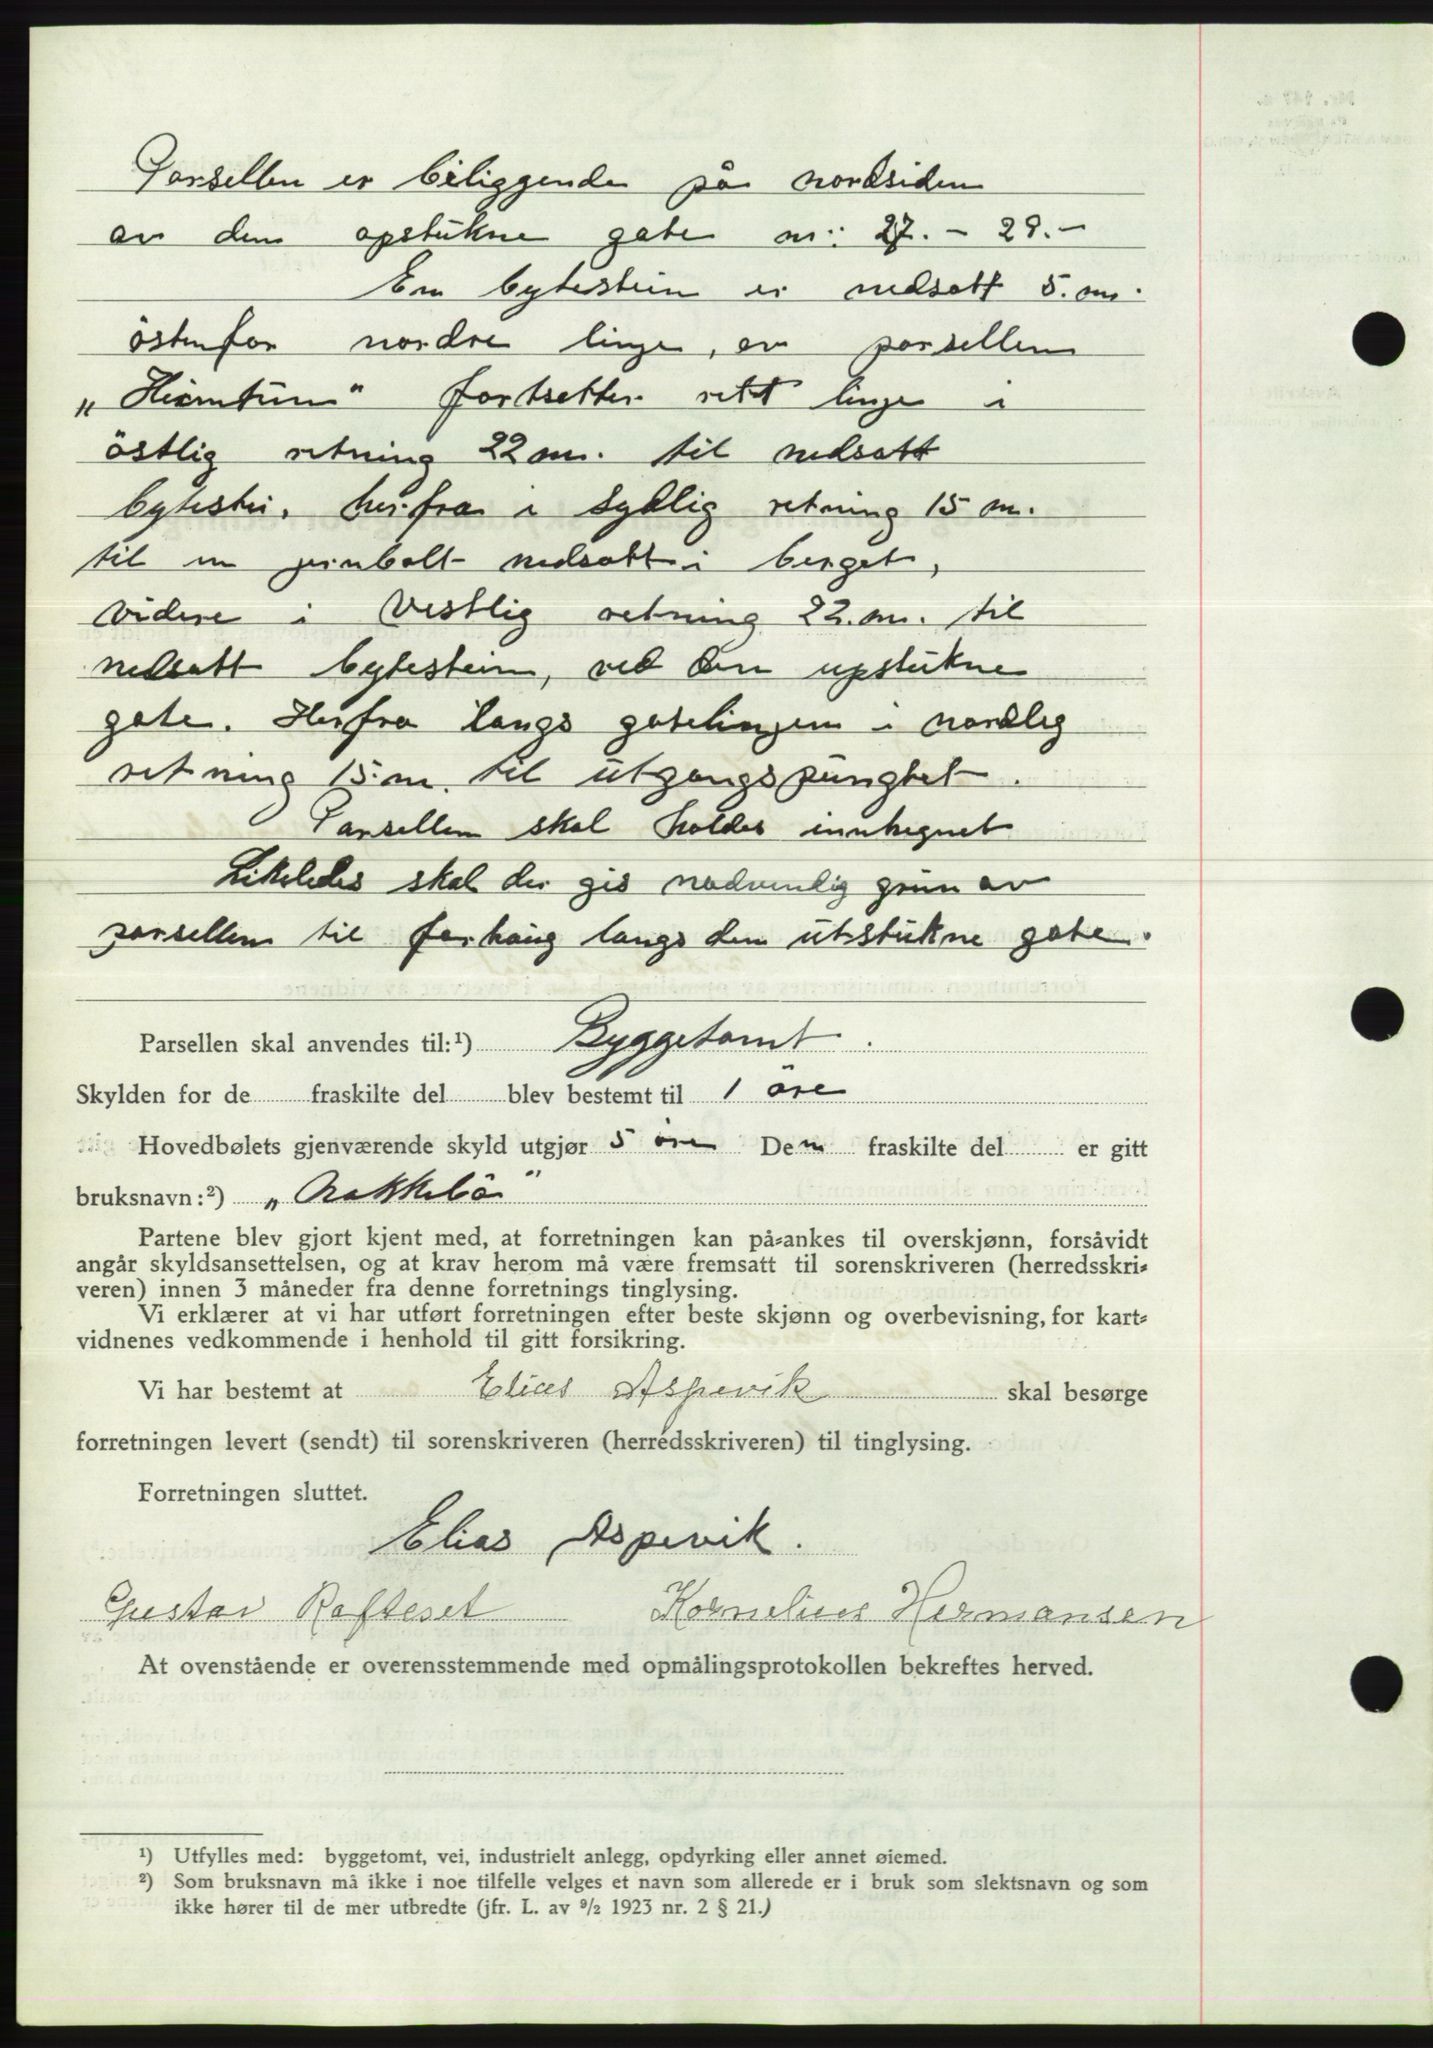 Parsellen er beliggende på nordsiden
av den opstukne gate nr: 27. - 29. -
En bytestein er nedsatt 5. m.
östenfor nordre linje, av parsellen
„Heimtun" fortsetter rett linje i
östlig retning 22 m. til nedsatt
bytestei. herfra i sydlig retning 15 m.
til en jernbolt nedsatt i berget,
videre i vestlig retning 22. m. til
nedsatt bytestein, ved den upstukne
gate. Herfra langs gatelinjen i nordlig
retning 15. m. til utgangspunghtet.
Parsellen skal holdes innhegnet
Likeledes skal der gis nødvendig grun av
parsellen til forhaug langs den utstukne gate.
Parsellen skal anvendes til:¹) Byggetomt.
Skylden for de fraskilte del blev bestemt til 1 öre
Hovedbølets gjenværende skyld utgjør 5 öre Den fraskilte del er gitt
bruksnavn:²) „Bakkebö"
Partene blev gjort kjent med, at forretningen kan på-ankes til overskjønn, forsåvidt
angår skyldsansettelsen, og at krav herom må være fremsatt til sorenskriveren (herredsskri-
veren) innen 3 måneder fra denne forretnings tinglysing.
Vi erklærer at vi har utført forretningen efter beste skjønn og overbevisning, for kart-
vidnenes vedkommende i henhold til gitt forsikring.
Vi har bestemt at Elias Aspevik skal besørge
forretningen levert (sendt) til sorenskriveren (herredsskriveren) til tinglysing.
Forretningen sluttet.
Elias Aspevik.
Gustav Rafteset Kornelius Hermansen
At ovenstående er overensstemmende med opmålingsprotokollen bekreftes herved.
¹) Utfylles med: byggetomt, vei, industrielt anlegg, opdyrking eller annet øiemed.
²) Som bruksnavn må ikke i noe tilfelle velges et navn som allerede er i bruk som slektsnavn og som
ikke hører til de mer utbredte (jfr. L. av 9/2 1923 nr. 2 § 21.)